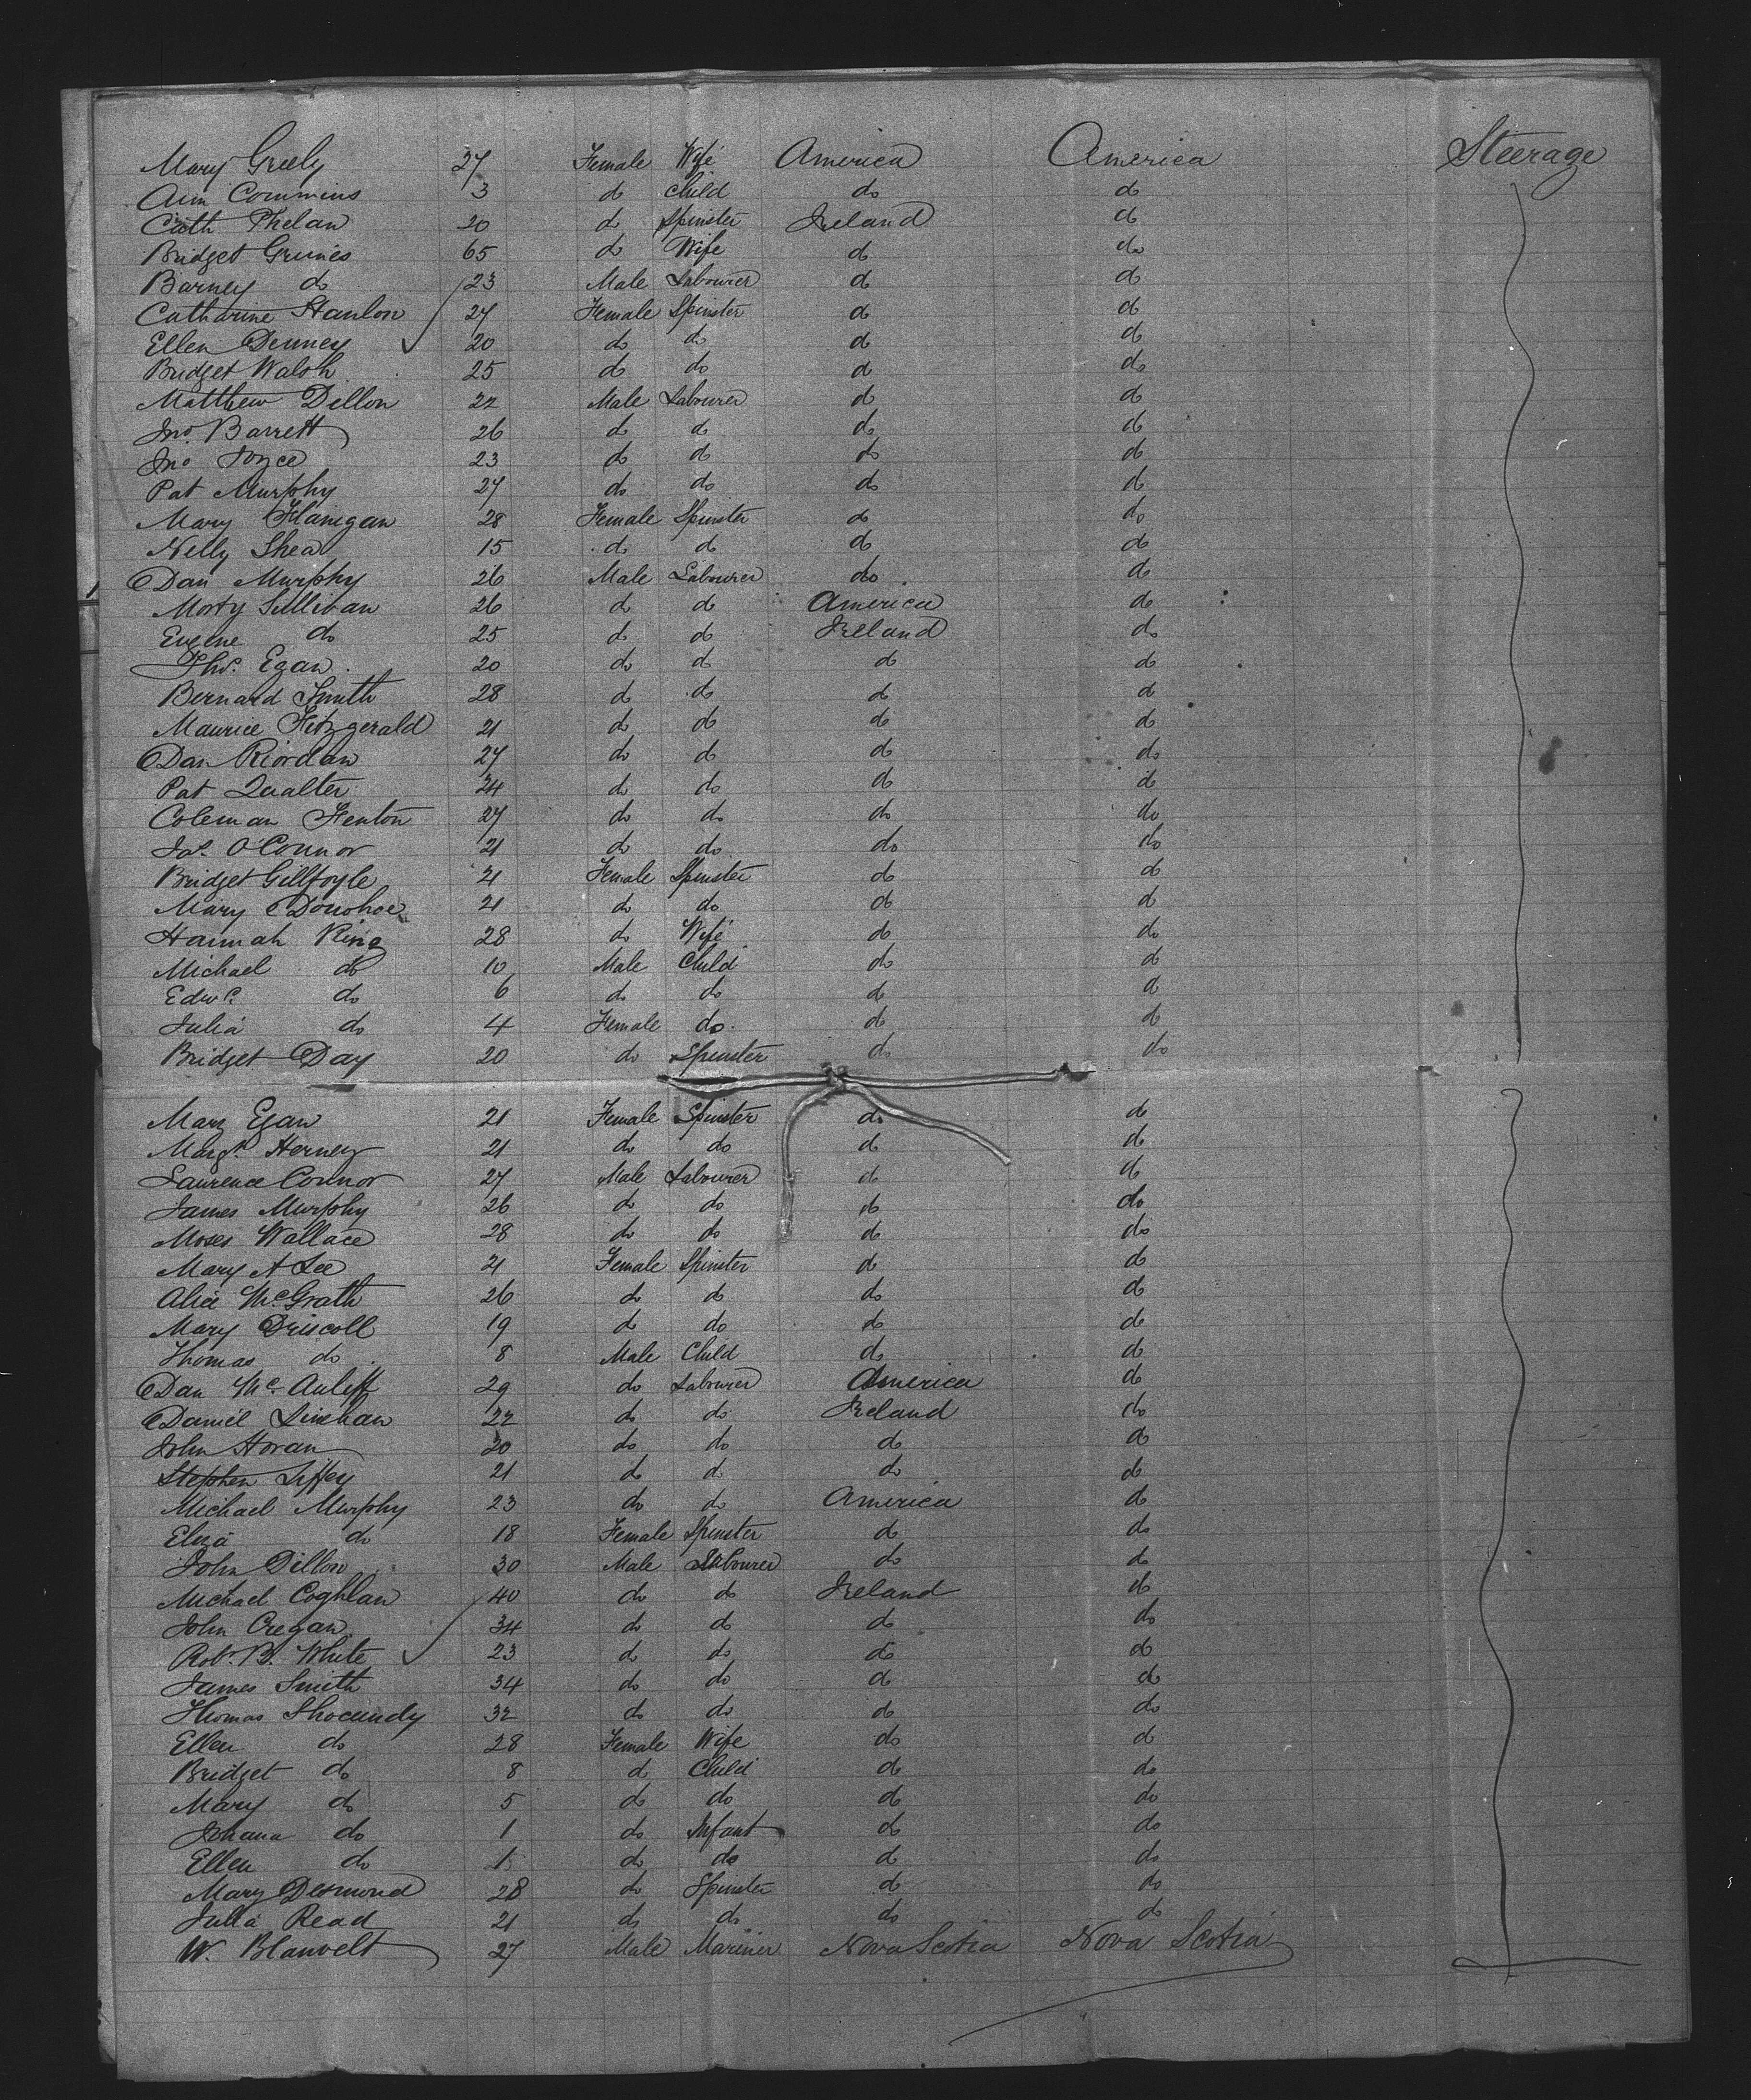 Mary Greely 27 Female Wife America America Steerage
Ann Commins 3 do Child do do
Cath Phelan 20 do Spinster Ireland do
Bridget Grimes 65 do Wife do do
Barney do 23 Male Labourer do do
Catharine Hanlon 27 Female Spinster do do
Ellen Denney 20 do do do do
Bridget Walsh 25 do do do do
Matthew Dillon 22 Male Labourer do do
Jno. Barrett 26 do do do do
Jno Joyce 23 do do do do
Pat Murphy 27 do do do do
Mary Flanigan 28 Female Spinster do do
Nelly Shea 15 do do do do
Dan Murphy 26 Male Labourer do do
Morty Sullivan 26 do do America do
Eugene do 25 do do Ireland do
Thos. Egan 20 do do do do
Bernard Smith 28 do do do do
Maurice Fitzgerald 21 do do do do
Dan Riordan 27 do do do do
Pat Qualter 24 do do do do
Coleman Fenton 27 do do do do
Jas. O'Connor 21 do do do do
Bridget Gillfoyle 21 Female Spinster do do
Mary Donohoe 21 do do do do
Hannah Ring 28 do Wife do do
Michael do 10 Male Child do do
Edwd. do 6 do do do do
Julia do 4 Female do do do
Bridget Day 20 do Spinster do do
Mary Egan 21 Female Spinster do do
Margt. Herney 21 do do do do
Laurence Connor 27 Male Labourer do do
James Murphy 26 do do do do
Moses Wallace 28 do do do do
Mary A Lee 21 Female Spinster do do
Alice McGrath 26 do do do do
Mary Driscoll 19 do do do do
Thomas do 8 Male Child do do
Dan McAuliff 29 do Labourer America do
Daniel Linehan 22 do do Ireland do
John Horan 20 do do do do
Stephen 21 do do do do
Michael Murphy 23 do do America do
Eliza do 18 Female Spinster do do
John Dillon 30 Male Labourer do do
Michael Coghlan 40 do do Ireland do
John Cregan 34 do do do do
Robt. B. White 23 do do do do
James Smith 34 do do do do
Thomas 32 do do do do
Ellen do 28 Female Wife do do
Bridget do 8 do Child do do
Mary do 5 do do do do
Johana do 1 do Infant do do
Ellen do 1 do do do do
Mary Desmond 28 do Spinster do do
Julia Read 21 do do do do
W. Blauvelt 27 Male Mariner Nova Scotia Nova Scotia